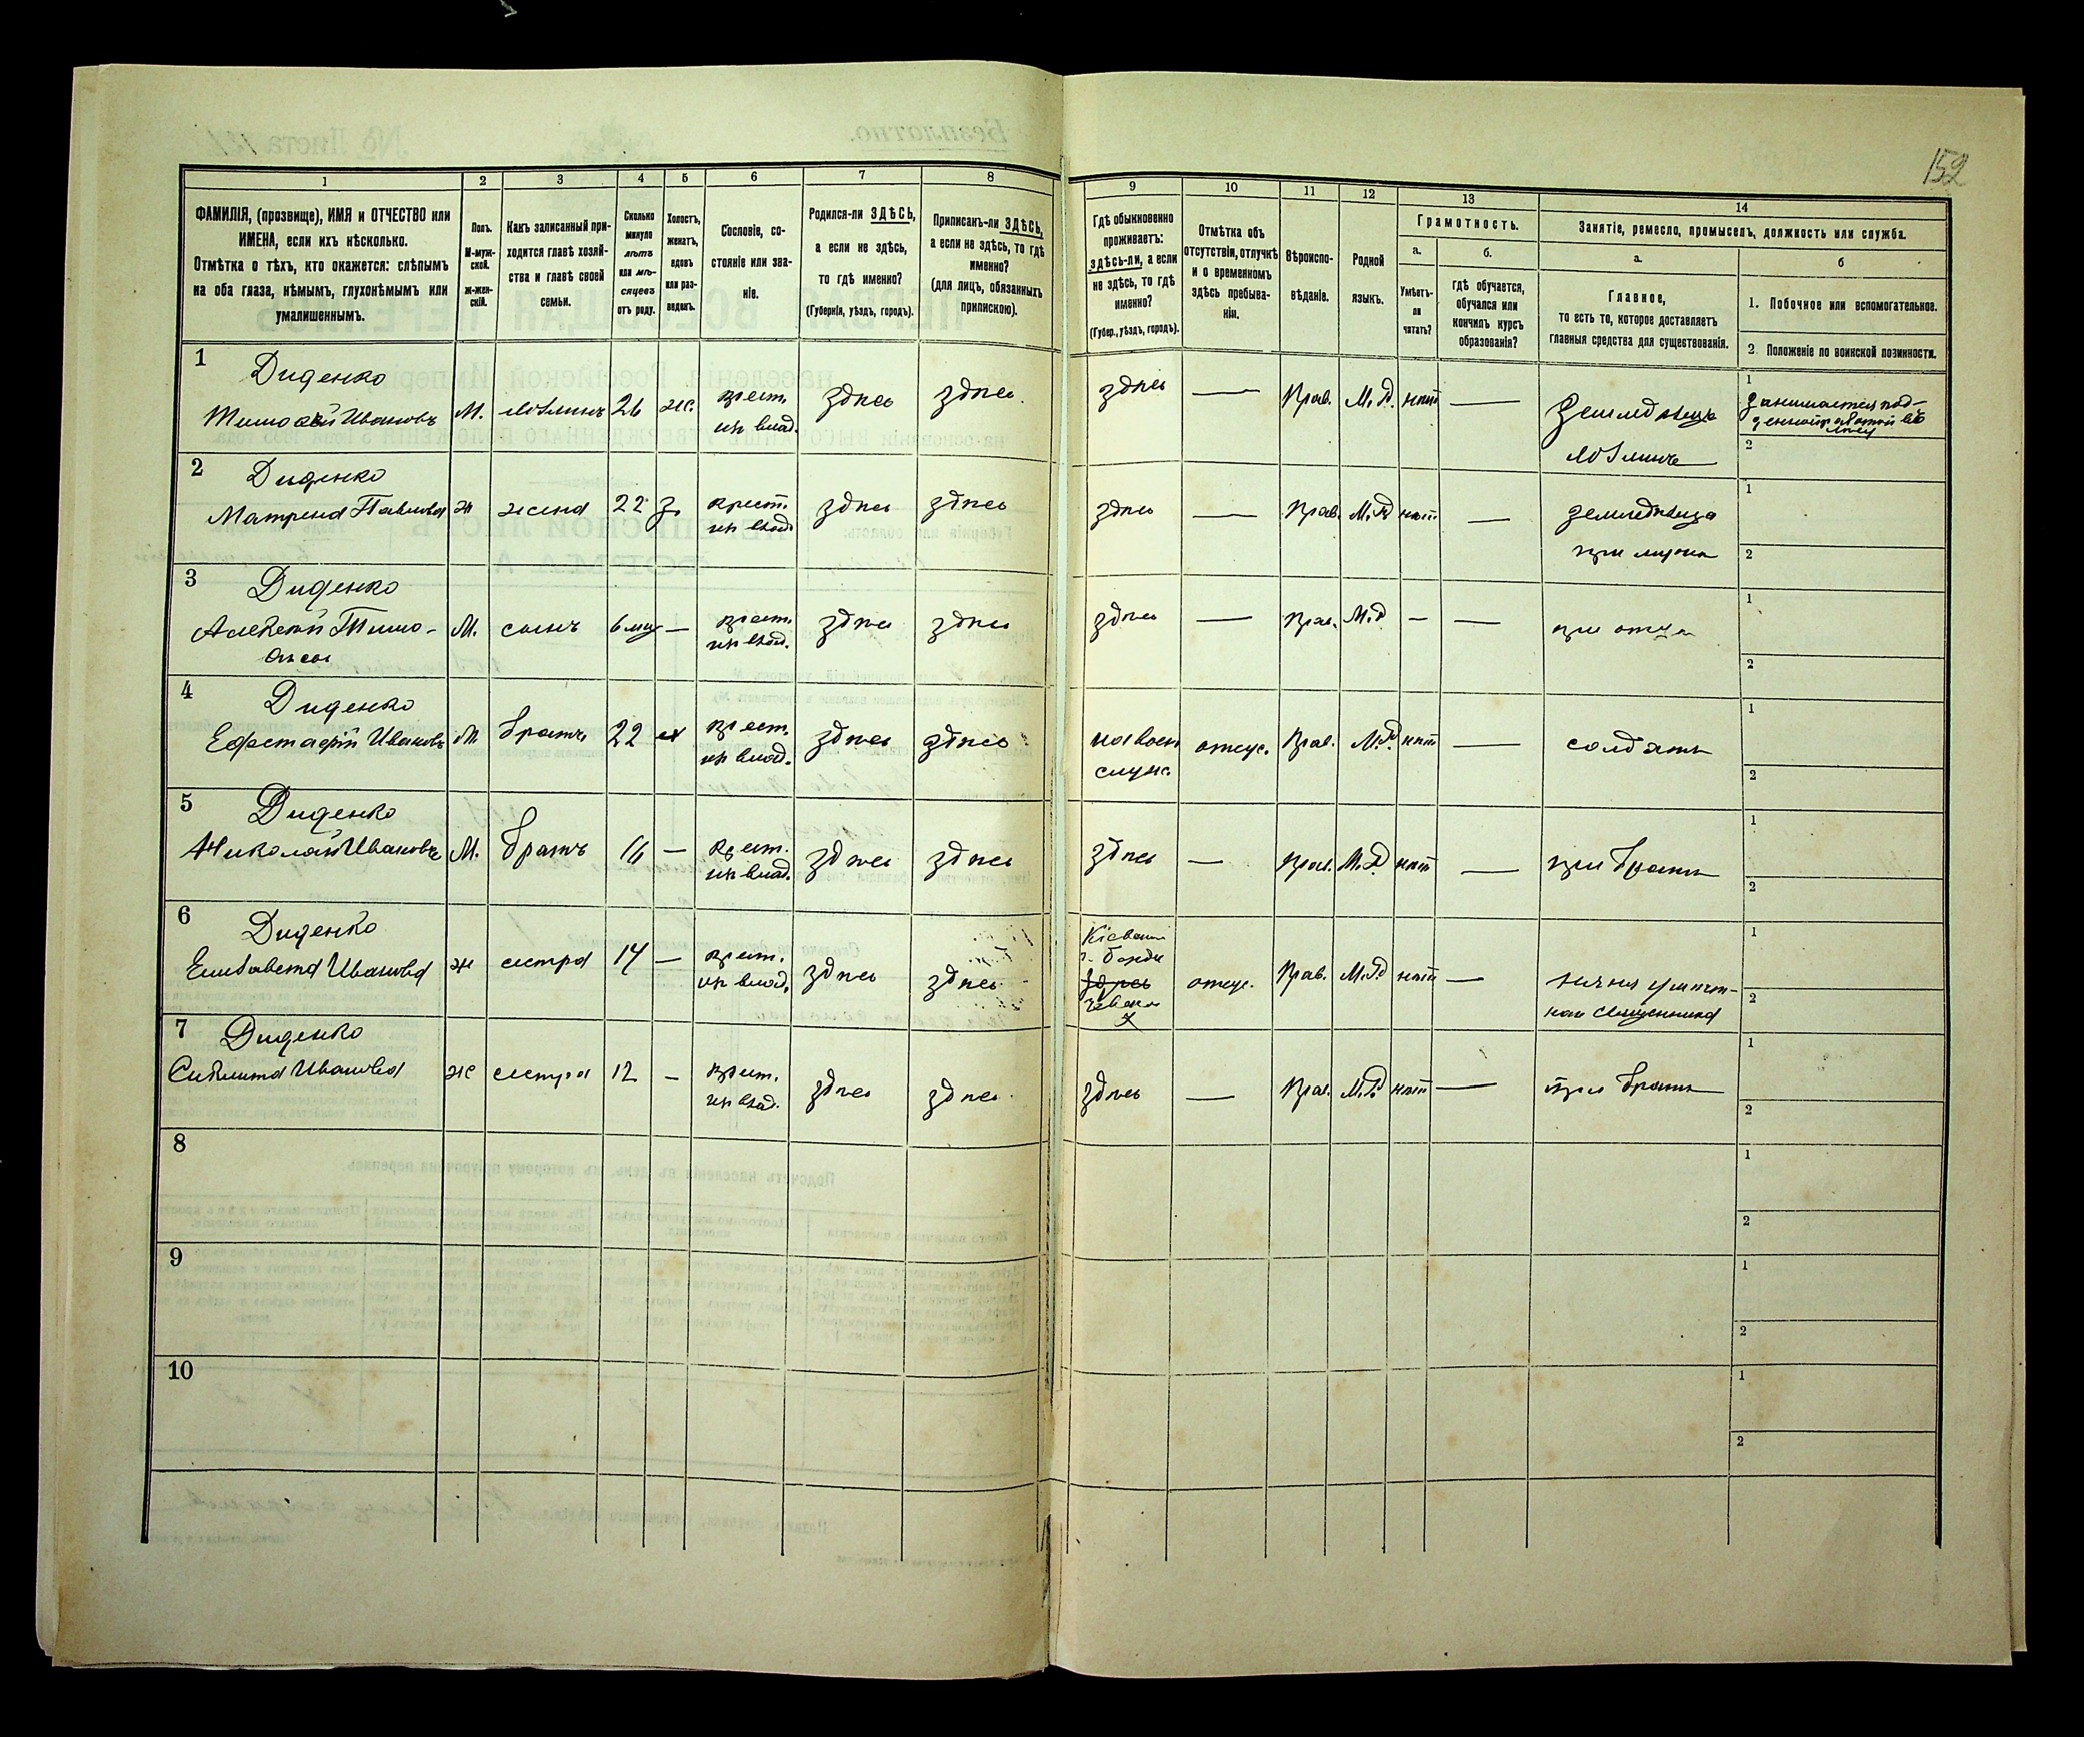 152
1
2
3
4
5
6
7
8
9
10
11
12
13
14
ФАМИЛІЯ, (прозвище), ИМЯ и ОТЧЕСТВО или
ИМЕНА, если ихъ нѣсколько.
Отмѣтка о тѣхъ, кто окажется: слѣпымъ
на оба глаза, нѣмымъ, глухонѣмымъ или
умалишеннымъ.
Полъ.
М-муж-
ской.
ж-жен-
скій.
Какъ записанный при-
ходится главѣ хозяй-
ства и главѣ своей
семьи.
Сколько
минуло
лѣтъ
или мѣ-
сяцевъ
отъ роду.
Холостъ,
женатъ,
вдовъ
или раз-
веденъ.
Сословіе, со-
стояніе или зва-
ніе.
Родился-ли ЗДѢСЬ,
а если не здѣсь,
то гдѣ именно?
(Губернія, уѣздъ, городъ).
Приписанъ-ли ЗДѢСЬ,
а если не здѣсь, то гдѣ
именно?
(для лицъ, обязанныхъ
припискою).
Гдѣ обыкновенно
проживаетъ:
здѣсь-ли, а если
не здѣсь, то гдѣ
именно?
(Губер., уѣздъ, городъ).
Отмѣтка объ
отсутствіи, отлучкѣ
и о временномъ
здѣсь пребыва-
ніи.
Вѣроиспо-
вѣданіе.
Родной
языкъ.
Грамотность.
а.
Умѣетъ-
ли
читать?
б.
гдѣ обучается,
обучался или
кончилъ курсъ
образованія?
Занятіе, ремесло, промыселъ, должность или служба.
а.
Главное,
то есть то, которое доставляетъ
главныя средства для существованія.
б
1. Побочное или вспомогательное.
2. Положеніе по воинской повинности.
1
Диденко
Тимофей Ивановъ
М.
хозяинъ
26
ж.
крест.
из влад.
здѣсь
здѣсь.
здѣсь
—
Прав.
М. Р.
нѣт
—
Земледѣлецъ
хозяинъ
1
занимается под-
2
2
Диденко
Матрена Павлова
ж
жена
22
з.
крест.
из влад.
здѣсь
здѣсь
здѣсь
—
Прав.
М. Р.
нѣт
—
земледѣлецъ
при мужѣ
1
2
3
Диденко
Алексѣй Тимо-
фѣевъ
М.
сынъ
6 мѣс
—
крест.
из влад.
здѣсь
здѣсь
здѣсь
—
Прав.
М. Р
—
—
при отцѣ
1
2
4
Диденко
Ефстафій Ивановъ
М
братъ
22
х
крест.
из влад.
здѣсь
здѣсь
на воен
служ.
отсус.
Прав.
М. Р.
нѣт
—
солдатъ
1
2
5
Диденко
Николай Ивановъ
М.
братъ
16
—
крест.
из влад.
здѣсь
здѣсь
здѣсь
—
Прав.
М. Р.
нѣт
—
при братѣ
1
2
6
Диденко
Елизавета Иванова
ж
сестра
14
—
крест.
из влад.
здѣсь
здѣсь
здѣсь
отсус.
Прав.
М. Р
нѣт
—
священника
1
2
7
Диденко
Иванова
ж
сестра
12
—
крест.
из влад.
здѣсь
здѣсь.
здѣсь
—
Прав.
М. Р.
нѣт
—
при братѣ
1
2
8
1
2
9
1
2
10
1
2